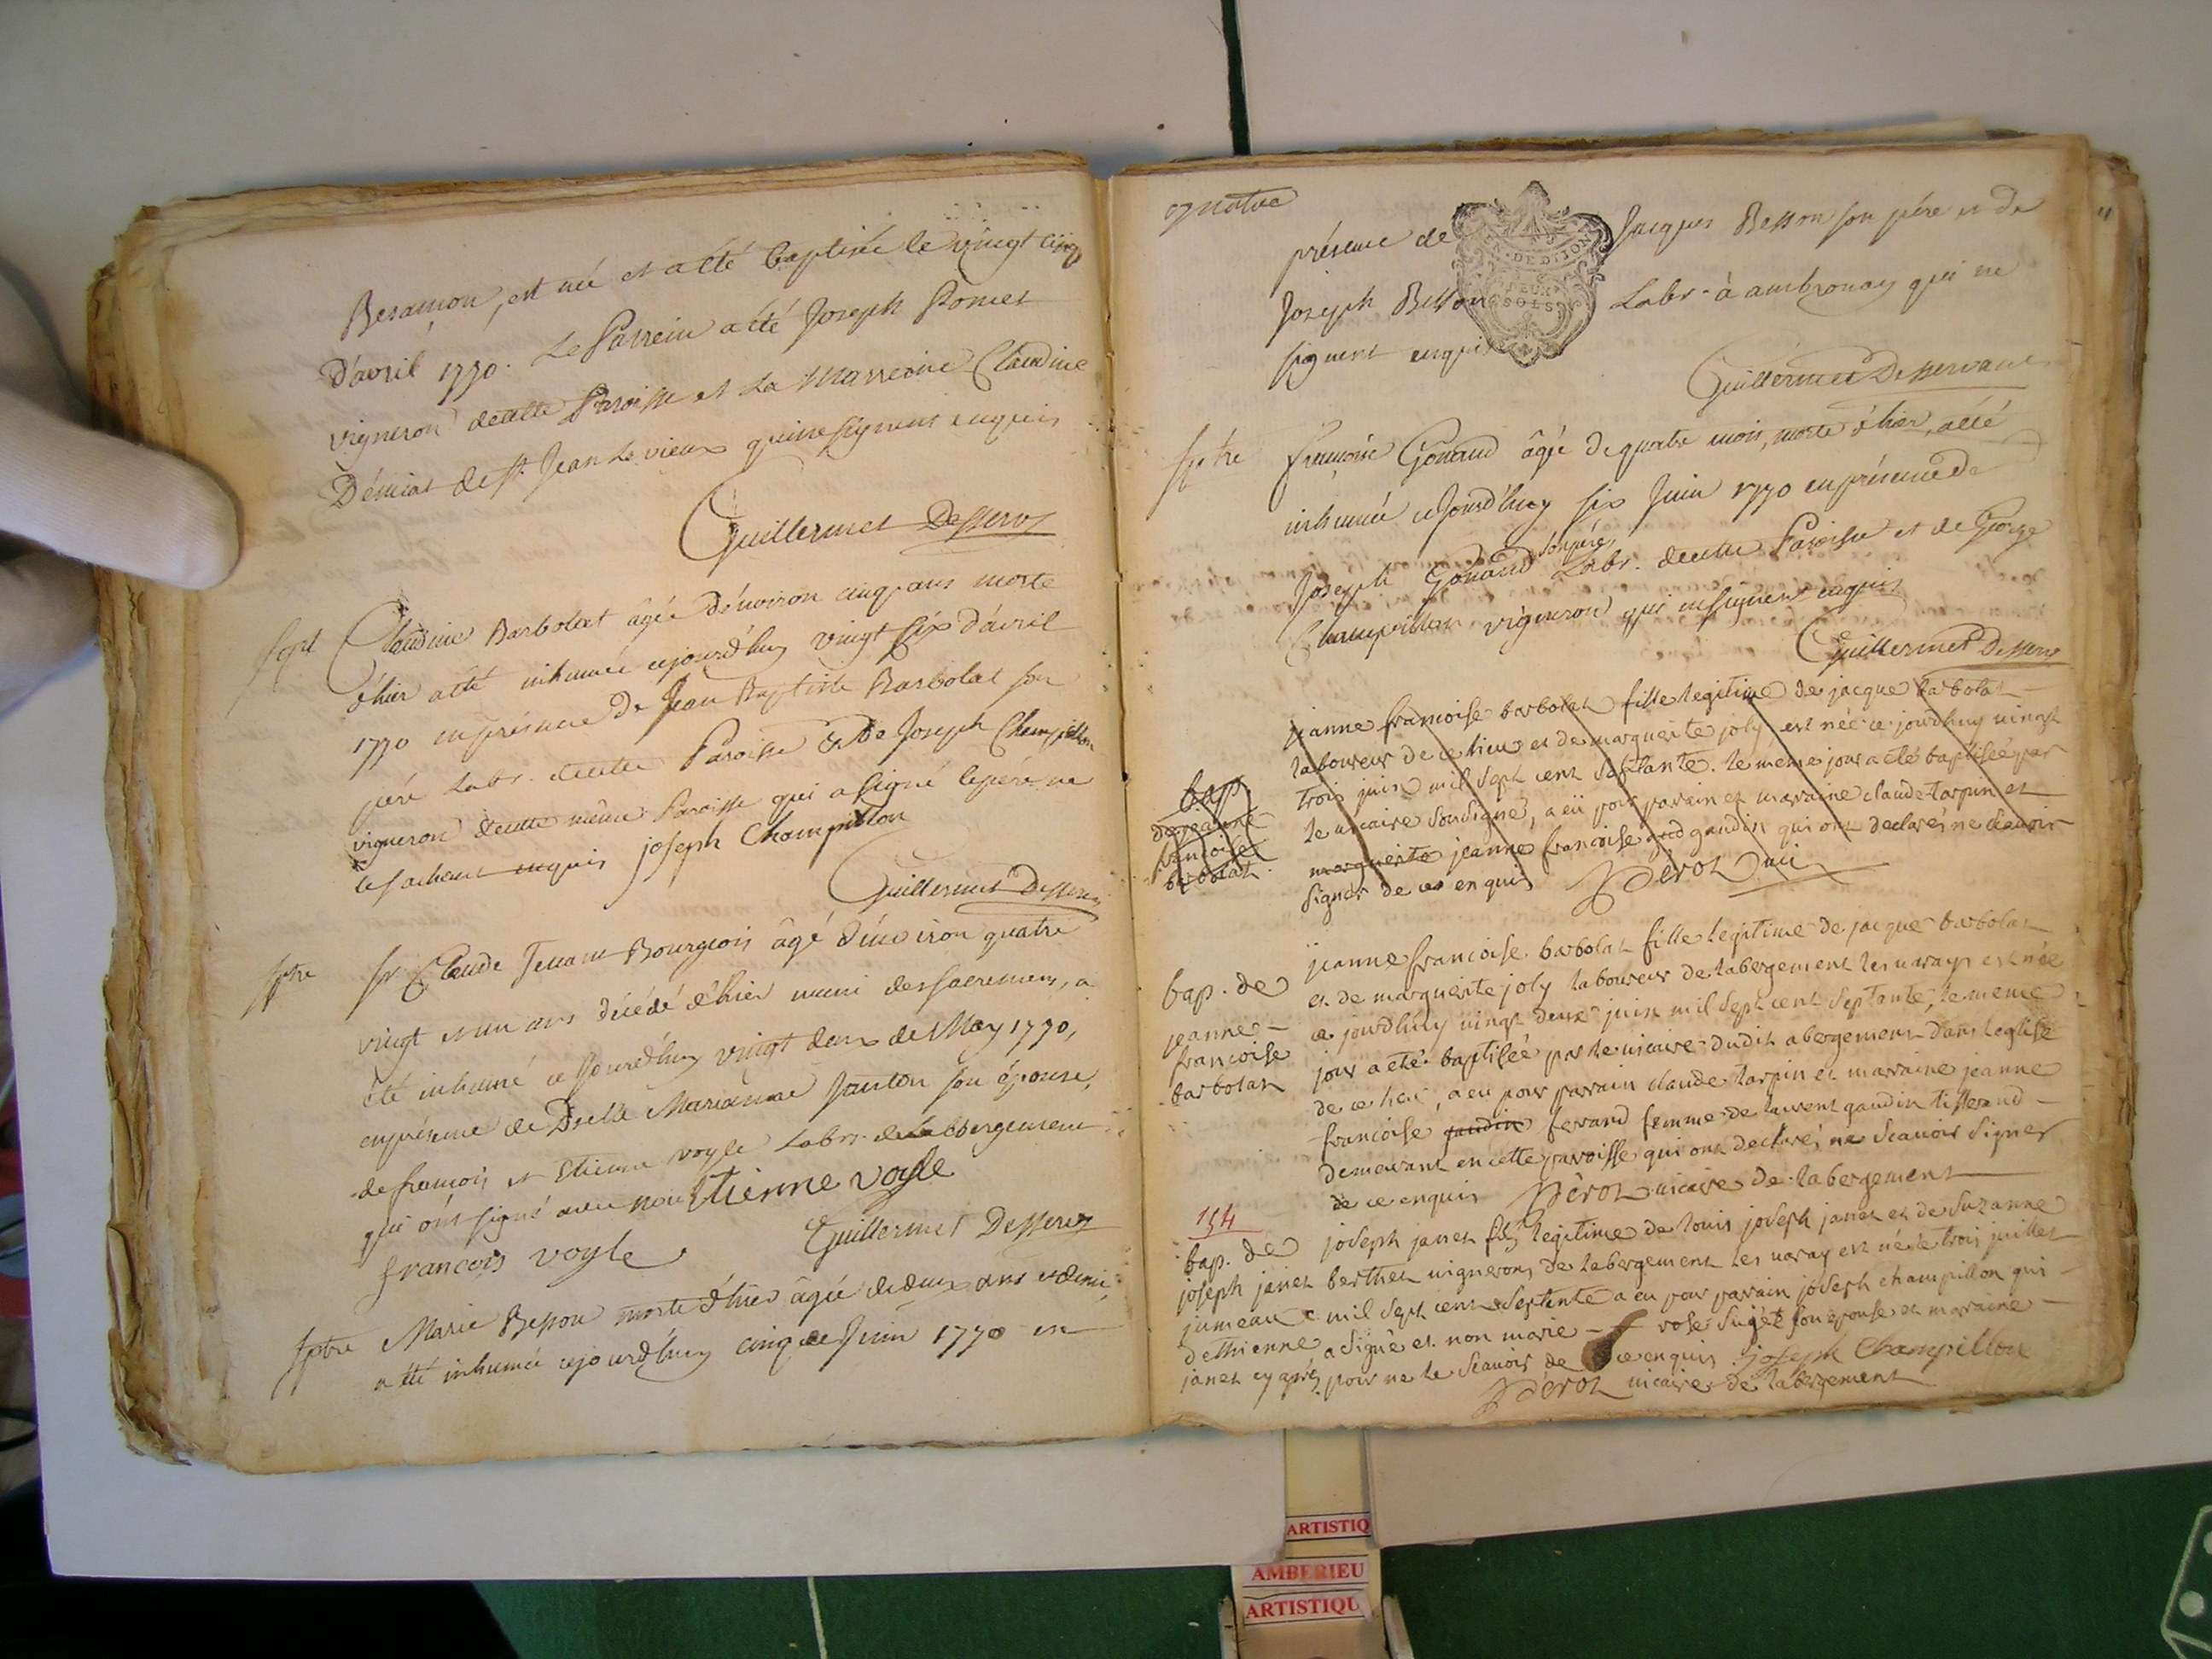 Besançon, est née et a été baptisée le vingt cinq
d'avril 1770. Le Parrein a été Joseph Pomet
vigneron decette Paroisse et La Marreine Claudine
Démiat de St. Jean le vieux qui ne signent enquis
Guillermet Desserv
sept Claudine Barbolat agée d'environ cinq ans morte
d'hier a été inhumée cejourd'huy vingt six d'avril
1770 en présence de Jean Baptiste Barbolat son
pére Labr. decette Paroisse & de Joseph Champillon
vigneron decette même Paroisse qui a signé le pére ne
le sachant enquis joseph Champillon
Guillermet Desserv
sptre sr Claude Tenant Bourgeois âgé d'environ quatre
vingt et un ans décédé d'hier muni des sacremens, a
été inhumé cejourd'huy vingt deux de May 1770,
en présence de Dselle Marianne son épouse,
de francois et Etienne voyle Labrs. de Labbergement
qui ont signé avec nous Etienne voyle
francois voyle Guillermet Desserv
sptre Marie Besson morte d'hier âgée de deux ans et demi,
a été inhumée cejourd'huy cinq de Juin 1770 en
présence de Jacques Besson son pére et de
Joseph Besson Labr. à ambronay qui ne
signent enquis
DE DIJON
DEUX
SOLS
Guillermet Desservant
sptre Gonand âgé de quatre mois, morte d'hier, a été
inhumée cejourd'huy six Juin 1770 en présence de
son pére
Joseph Gonand Labr. decette Paroisse et de George
Champillon vigneron qui ne signent enquis
Guillermet Desserv
jeanne francoise barbolat fille legitime de jacque barbolat
laboureur de ce lieu et de marguerite joly est née ce jourdhuy vingt
trois juin mil sept cent septante. le même jour a eté baptisée par
bap. de jeanne francoise barbolat
le vicaire soussigné, a eü pour parain et marraine claude tarpin et
marguerite jeanne francoise gaudin qui ont declarés ne scavoir
signer de ce enquis Dérot vic
jeanne francoise barbolat fille legitime de jacque barbolat
bap. de jeanne francoise barbolat
et de marguerite joly laboureur de labergement les varays est née
ce jourdhuy vingt deux juin mil sept cent septante, le meme
jour a eté baptisée par le vicaire dudit abergement dans leglise
de ce lieu, a eu pour parrain claude tarpin et marraine jeanne
francoise gaudin ferrand femme de laurent gaudin tisserand
demeurant en cette paroisse qui ont declaré ne scavoir signer
de ce enquis Dérot vicaire de labergement
154
bap. de joseph janet jumeau dethienne janet cy après
joseph janet fils legitime de louis joseph janet et de suzanne
berthet vignerons de labergement les varay est né le trois juillet
mil sept cent septente a eu pour parain joseph champillon qui
a signé et non marie rose son epouse et maraine
pour ne le scavoir de ce enquis. joseph Champillon
Dérot vicaire de labergement
ARTISTIQ
AMBERIEU
ARTISTIQU